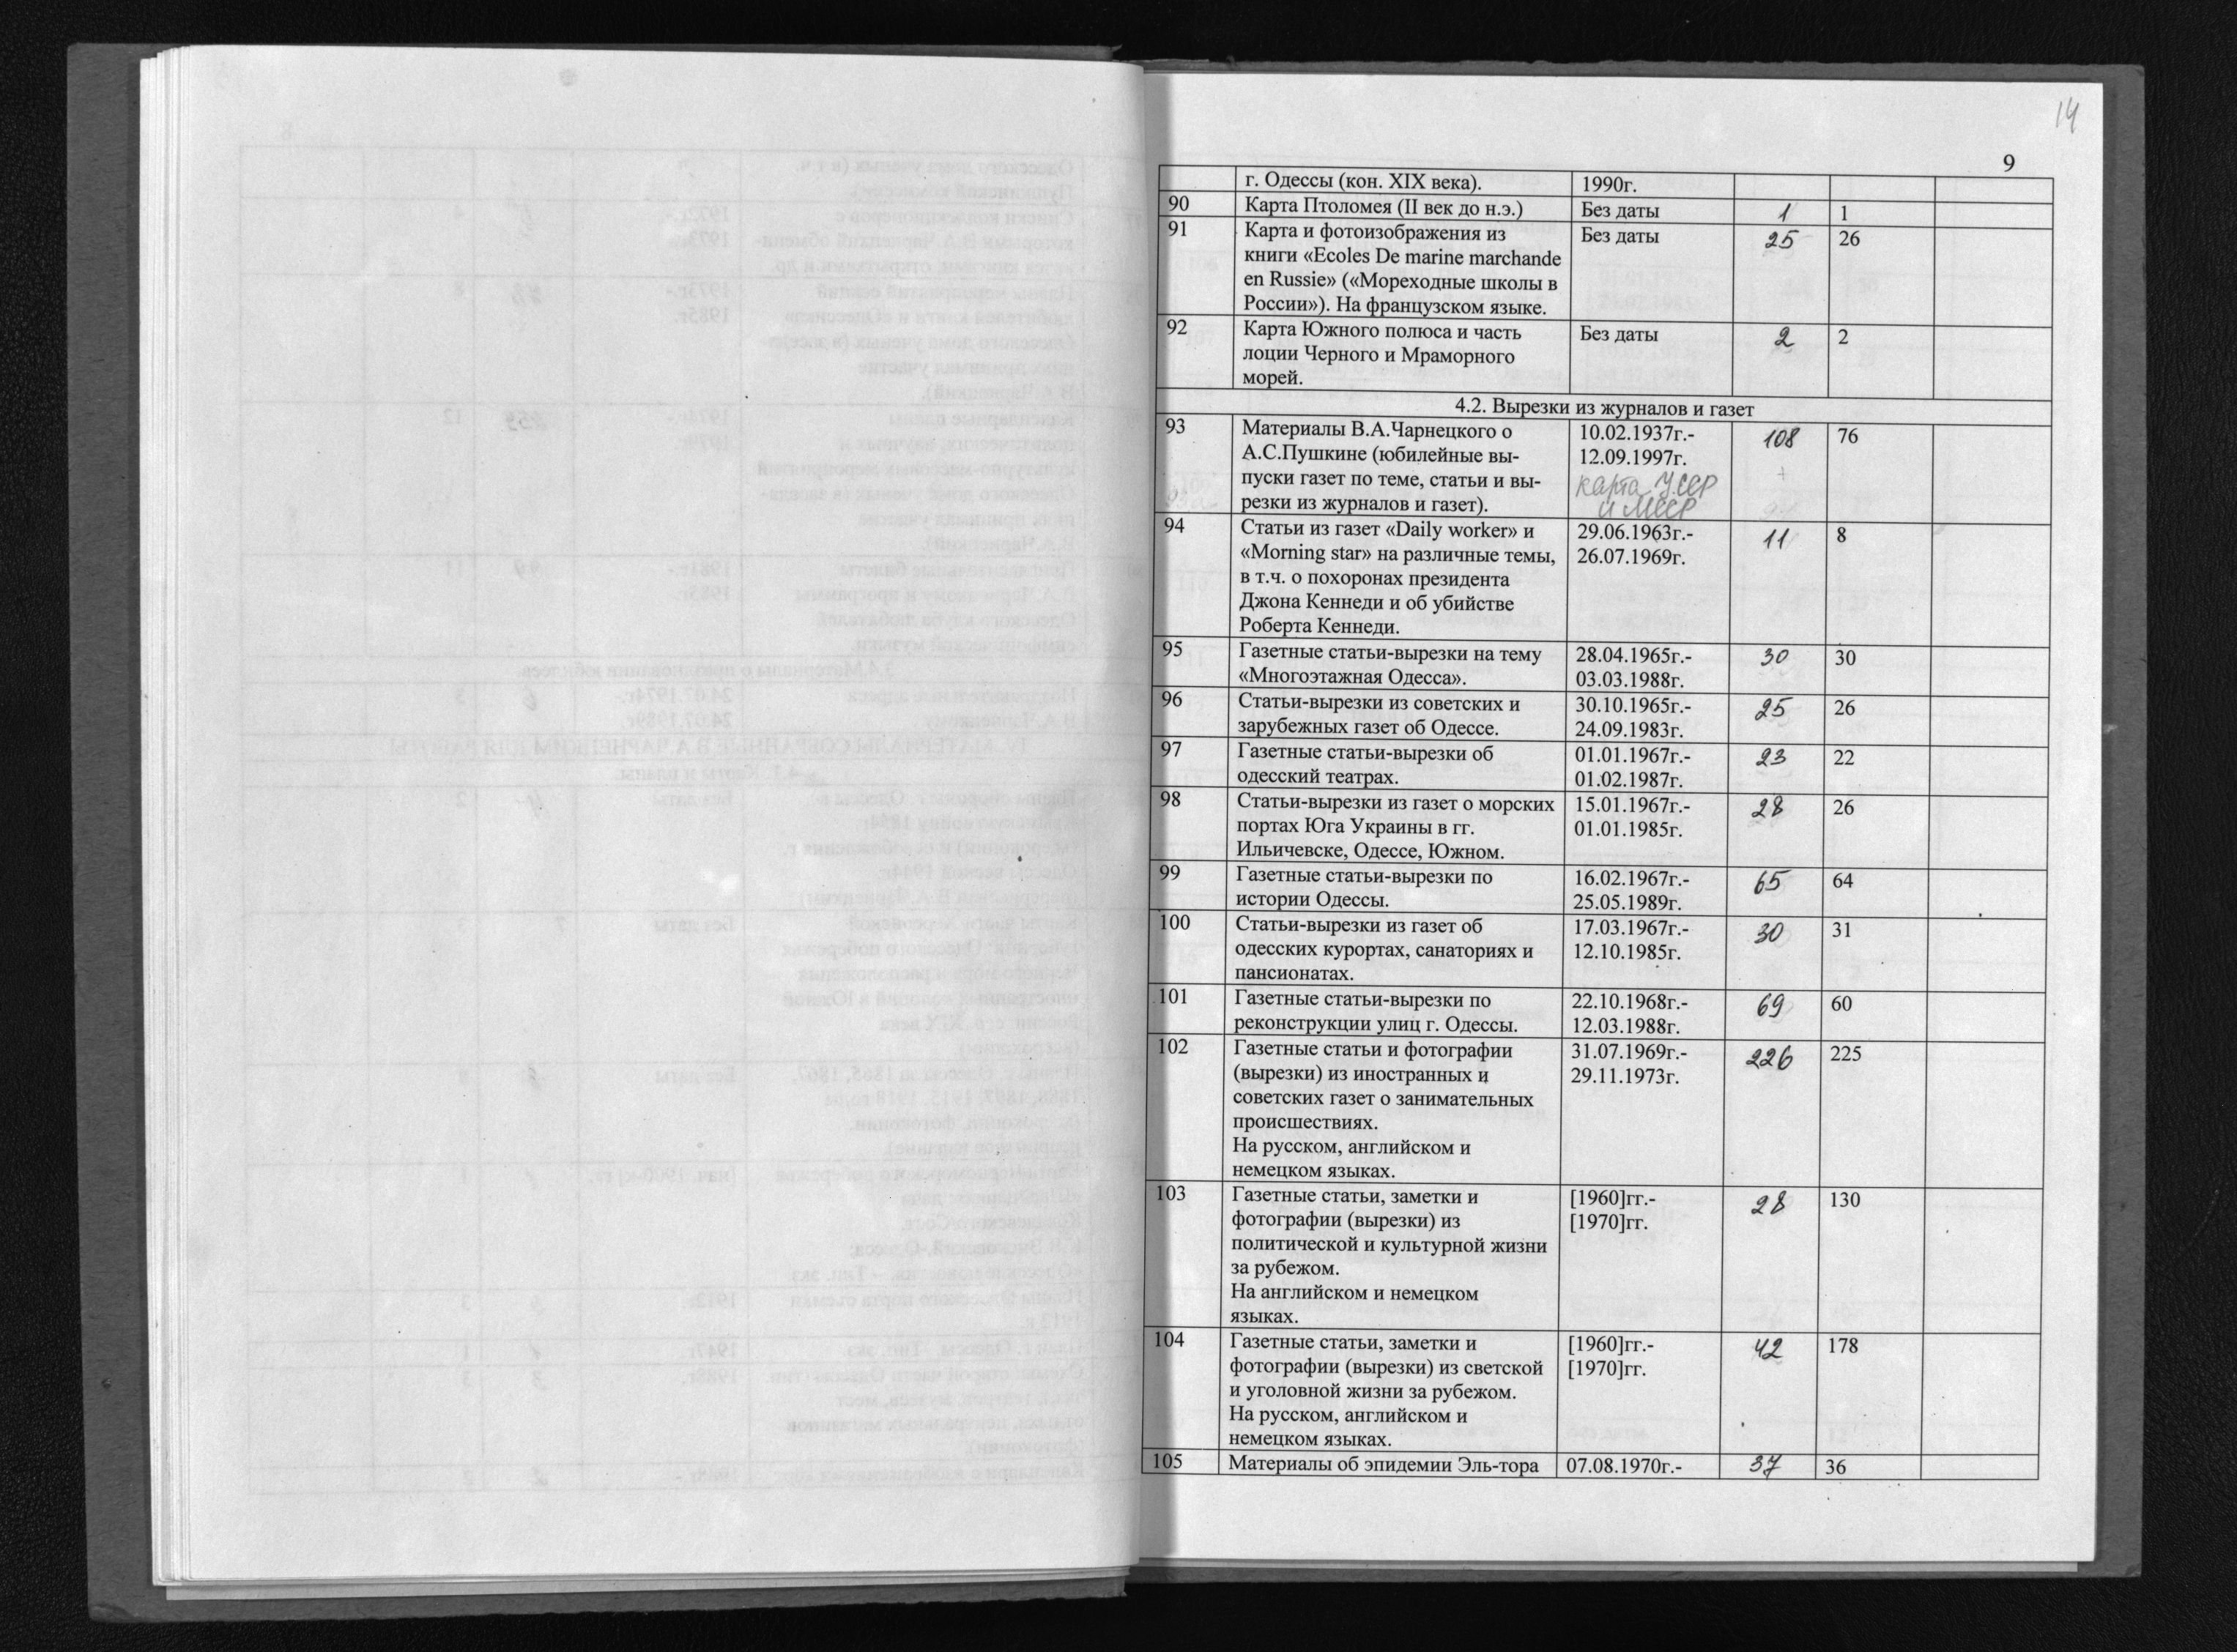 14
9
г. Одессы (кон. XIX века). 1990г.
90 Карта Птоломея (II век до н.э.) Без даты 1 1
91 Карта и фотоизображения из Без даты 25 26
книги «Ecoles De marine marchande
en Russie» («Мореходные школы в
России»). На французском языке.
92 Карта Южного полюса и часть Без даты 2 2
лоции Черного и Мраморного
морей.
4.2. Вырезки из журналов и газет
93 Материалы В.А.Чарнецкого о 10.02.1937г.- 108 76
А.С.Пушкине (юбилейные вы- 12.09.1997г.
пуски газет по теме, статьи и вы- карта УССР
резки из журналов и газет). и МССР
94 Статьи из газет «Daily worker» и 29.06.1963г.- 11 8
«Morning star» на различные темы, 26.07.1969г.
в т.ч. о похоронах президента
Джона Кеннеди и об убийстве
Роберта Кеннеди.
95 Газетные статьи-вырезки на тему 28.04.1965г.- 30 30
«Многоэтажная Одесса». 03.03.1988г.
96 Статьи-вырезки из советских и 30.10.1965г.- 25 26
зарубежных газет об Одессе. 24.09.1983г.
97 Газетные статьи-вырезки об 01.01.1967г.- 23 22
одесский театрах. 01.02.1987г.
98 Статьи-вырезки из газет о морских 15.01.1967г.- 28 26
портах Юга Украины в гг. 01.01.1985г.
Ильичевске, Одессе, Южном.
99 Газетные статьи-вырезки по 16.02.1967г.- 65 64
истории Одессы. 25.05.1989г.
100 Статьи-вырезки из газет об 17.03.1967г.- 30 31
одесских курортах, санаториях и 12.10.1985г.
пансионатах.
101 Газетные статьи-вырезки по 22.10.1968г.- 69 60
реконструкции улиц г. Одессы. 12.03.1988г.
102 Газетные статьи и фотографии 31.07.1969г.- 226 225
(вырезки) из иностранных и 29.11.1973г.
советских газет о занимательных
происшествиях.
На русском, английском и
немецком языках.
103 Газетные статьи, заметки и [1960]гг.- 28 130
фотографии (вырезки) из [1970]гг.
политической и культурной жизни
за рубежом.
На английском и немецком
языках.
104 Газетные статьи, заметки и [1960]гг.- 42 178
фотографии (вырезки) из светской [1970]гг.
и уголовной жизни за рубежом.
На русском, английском и
немецком языках.
105 Материалы об эпидемии Эль-тора 07.08.1970г.- 37 36